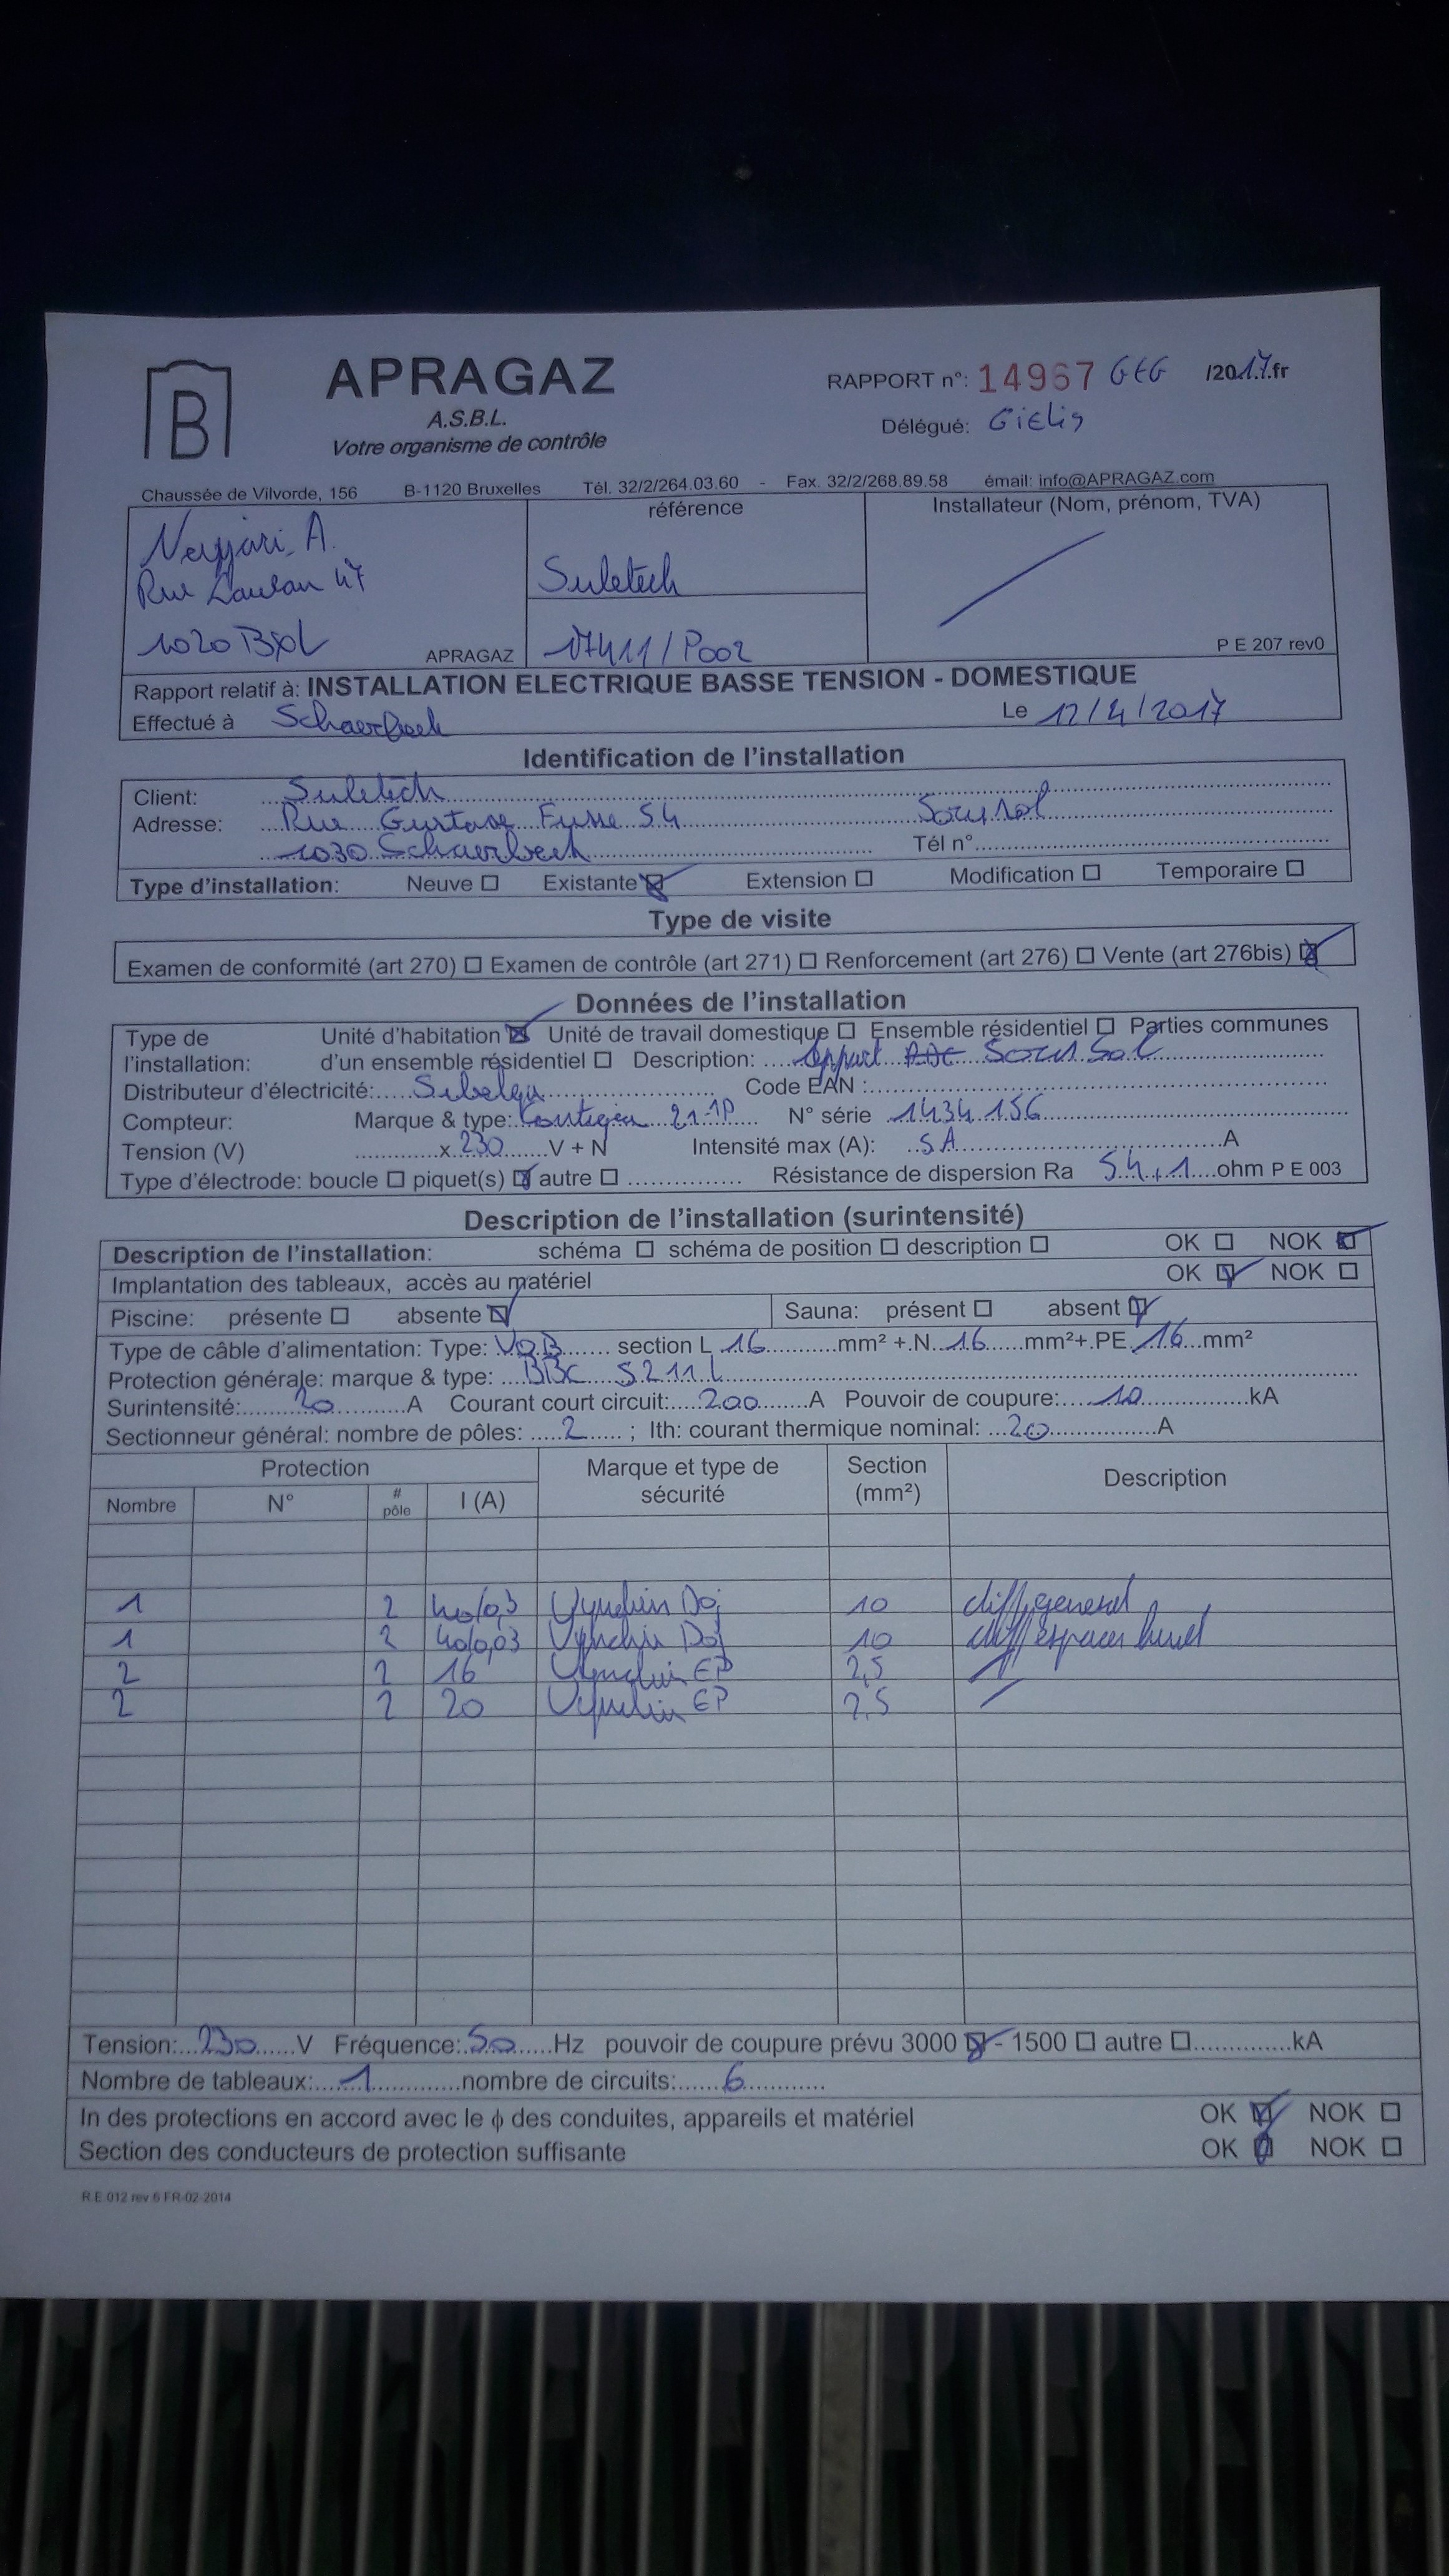 B
APRAGAZ
A.S.B.L.
Votre organisme de contrôle
RAPPORT n°: 14967 GEG /2017.fr
Délégué: Gielis
Chaussée de Vilvorde, 156 B-1120 Bruxelles Tél. 32/2/264.03.60 - Fax. 32/2/268.89.58 émail: info@APRAGAZ.com
référence
Installateur (Nom, prénom, TVA)
A.
Rue 47
1020 BxL
APRAGAZ
Suletech
17411/P002
P E 207 rev0
Rapport relatif à: INSTALLATION ELECTRIQUE BASSE TENSION - DOMESTIQUE
Effectué à Schaerbeek Le 12/4/2017
Identification de l'installation
Client: Suletech
Adresse: Rue Gustave Fusse 54 Sous sol
1030 Schaerbeek Tél n°
Type d'installation: Neuve Existante Extension Modification Temporaire
Type de visite
Examen de conformité (art 270) Examen de contrôle (art 271) Renforcement (art 276) Vente (art 276bis)
Données de l'installation
Type de l'installation: Unité d'habitation Unité de travail domestique Ensemble résidentiel Parties communes
d'un ensemble résidentiel Description: Appart Sous Sol
Distributeur d'électricité: Sibelga Code EAN :
Compteur: Marque & type: Contigea 21-1P N° série 1434156
Tension (V) x 230 V + N Intensité max (A): 5A A
Type d'électrode: boucle piquet(s) autre Résistance de dispersion Ra 54,1 ohm P E 003
Description de l'installation (surintensité)
Description de l'installation: schéma schéma de position description OK NOK
Implantation des tableaux, accès au matériel OK NOK
Piscine: présente absente Sauna: présent absent
Type de câble d'alimentation: Type: VOB section L 16 mm² + N 16 mm²+ PE 16 mm²
Protection générale: marque & type: BBC S211 L
Surintensité: 20 A Courant court circuit: 200 A Pouvoir de coupure: 10 kA
Sectionneur général: nombre de pôles: 2 ; Ith: courant thermique nominal: 20 A
Protection Marque et type de sécurité Section (mm²) Description
Nombre N° # pôle I (A)
1 2 40/0,3 Vynckier Doj 10 diff general
1 2 40/0,03 Vynckier Doj 10 diff espaces humd
2 2 16 Vynckier EP 2,5
2 2 20 Vynckier EP 2,5
Tension: 230 V Fréquence: 50 Hz pouvoir de coupure prévu 3000 - 1500 autre kA
Nombre de tableaux: 1 nombre de circuits: 6
In des protections en accord avec le ϕ des conduites, appareils et matériel OK NOK
Section des conducteurs de protection suffisante OK NOK
R.E 012 rev 6 FR-02-2014